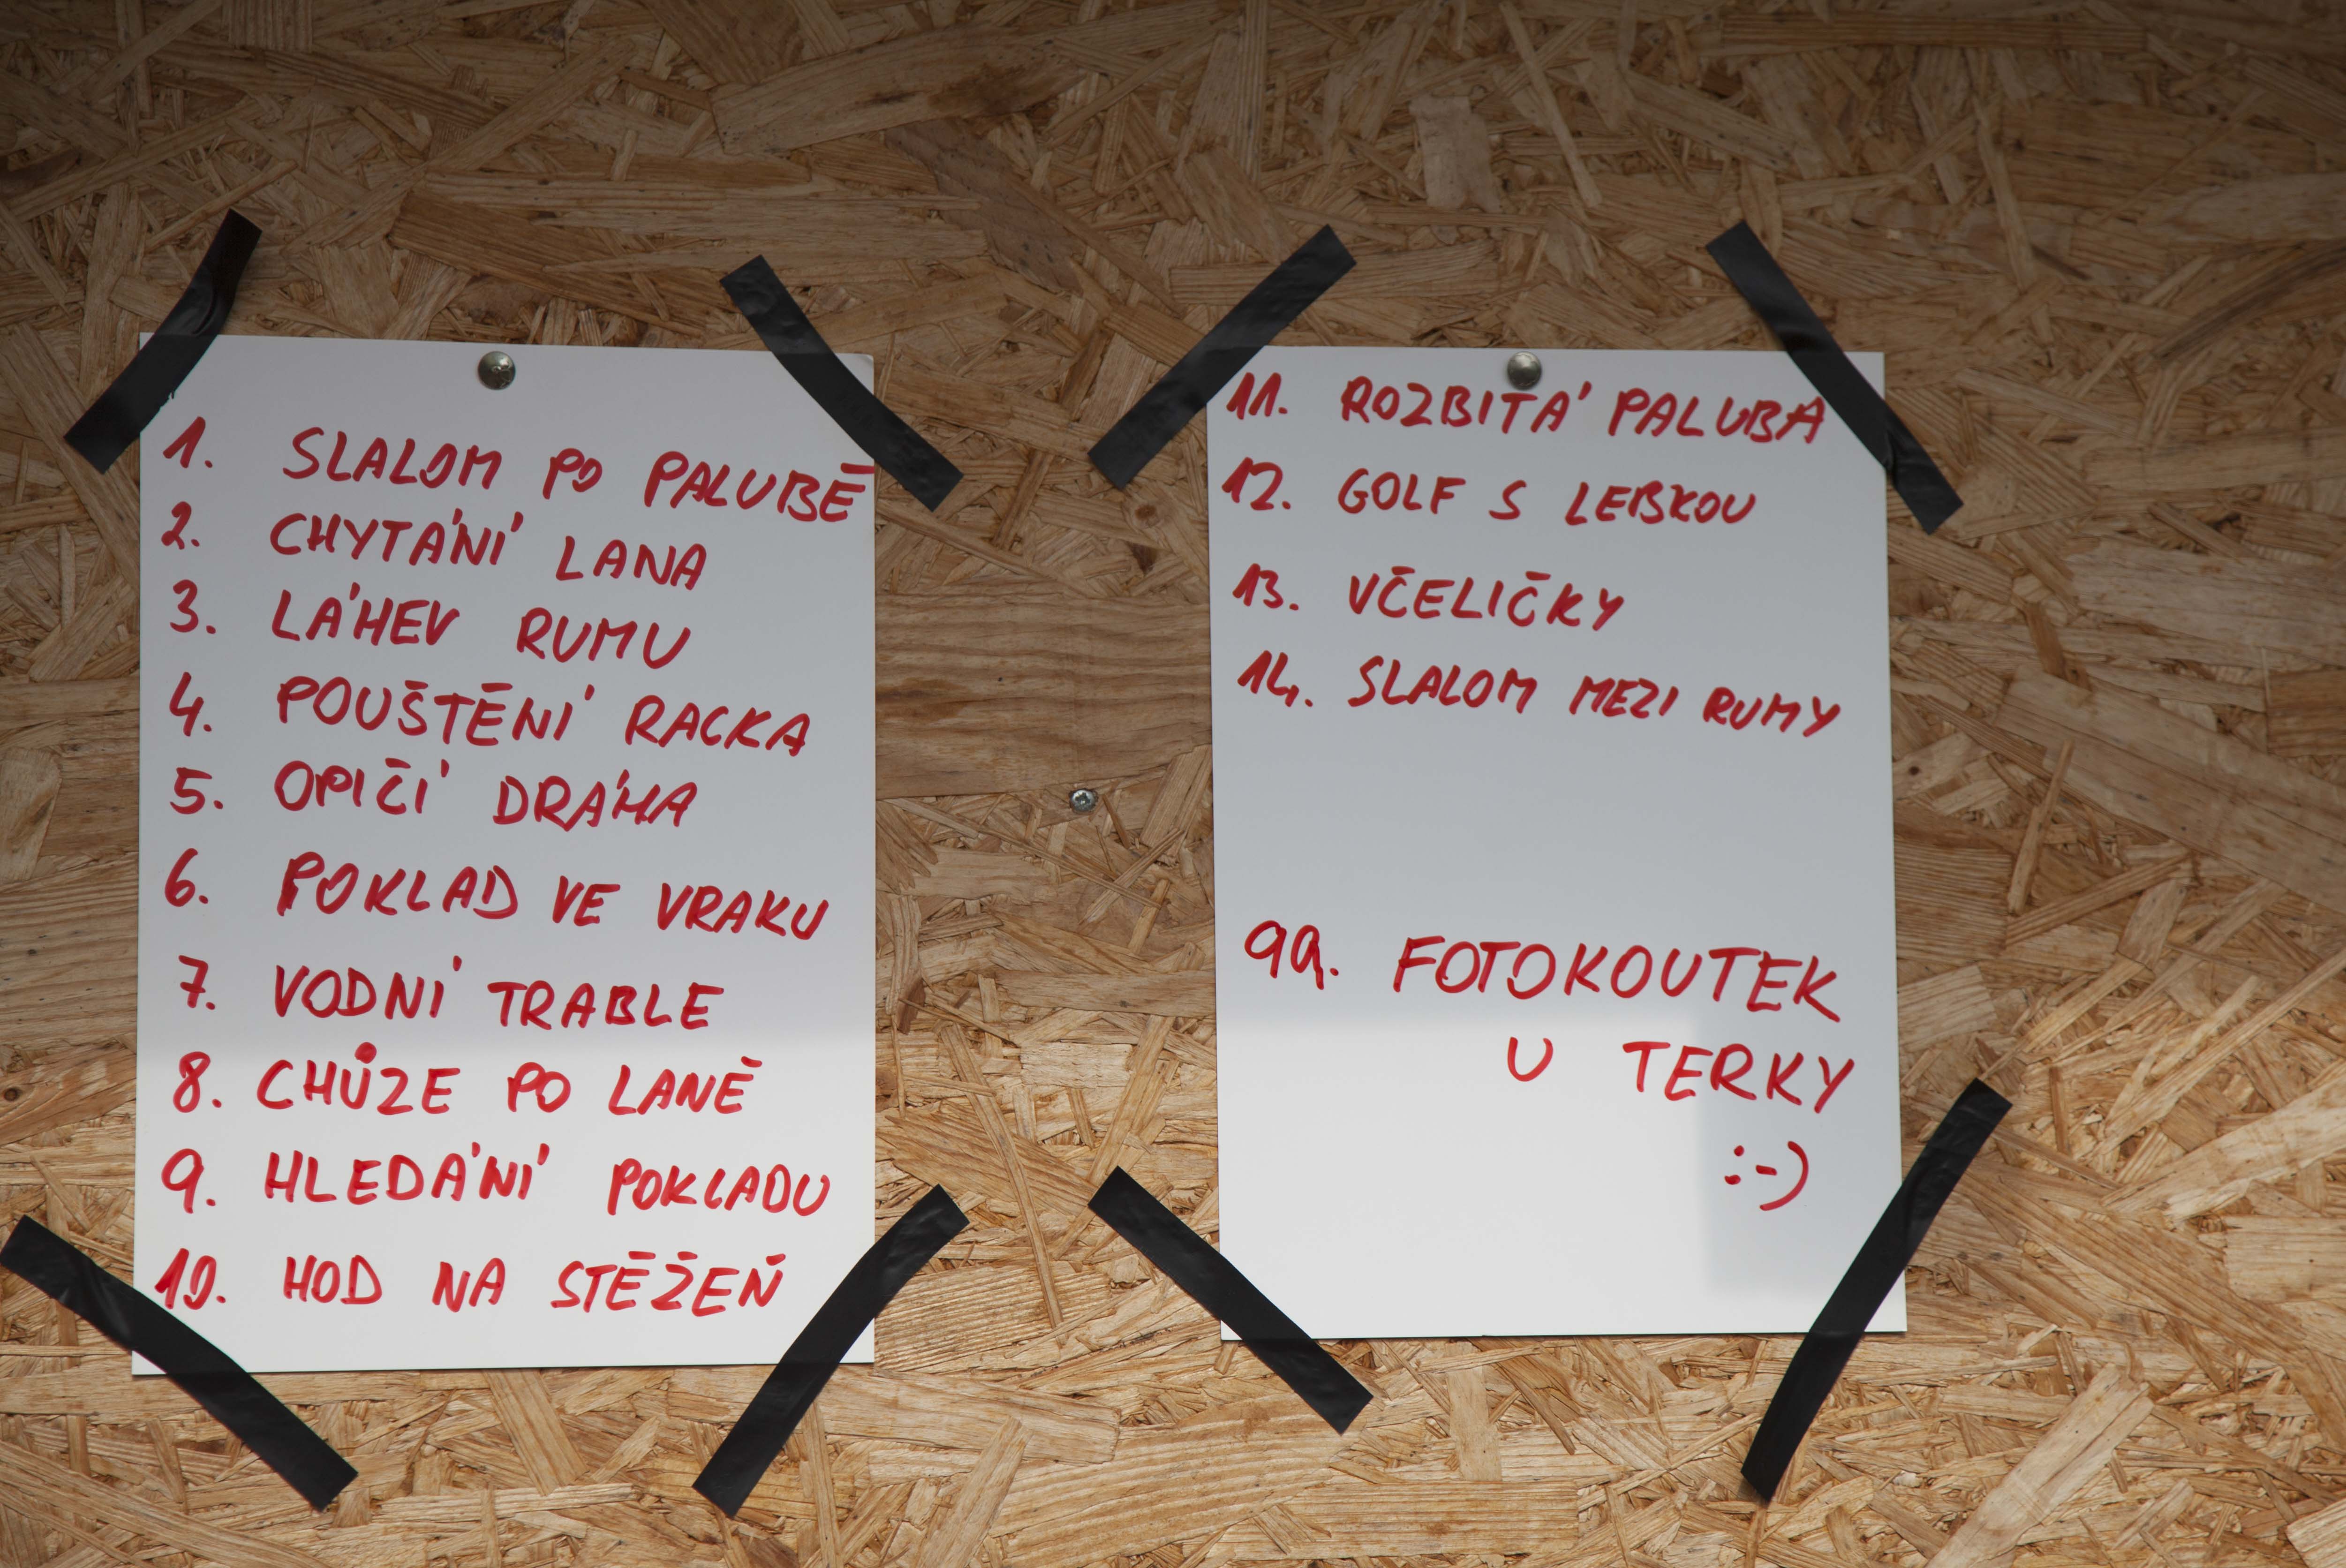 1. SLALOM PO PALUBĚ
2. CHYTÁNÍ LANA
3. LÁHEV RUMU
4. POUŠTĚNÍ RACKA
5. OPIČÍ DRÁHA
6. POKLAD VE VRAKU
7. VODNÍ TRABLE
8. CHŮZE PO LANĚ
9. HLEDÁNÍ POKLADU
10. HOD NA STĚŽEŇ
11. ROZBITÁ PALUBA
12. GOLF S LEBKOU
13. VČELIČKY
14. SLALOM MEZI RUMY
99. FOTOKOUTEK
U TERKY
:-)